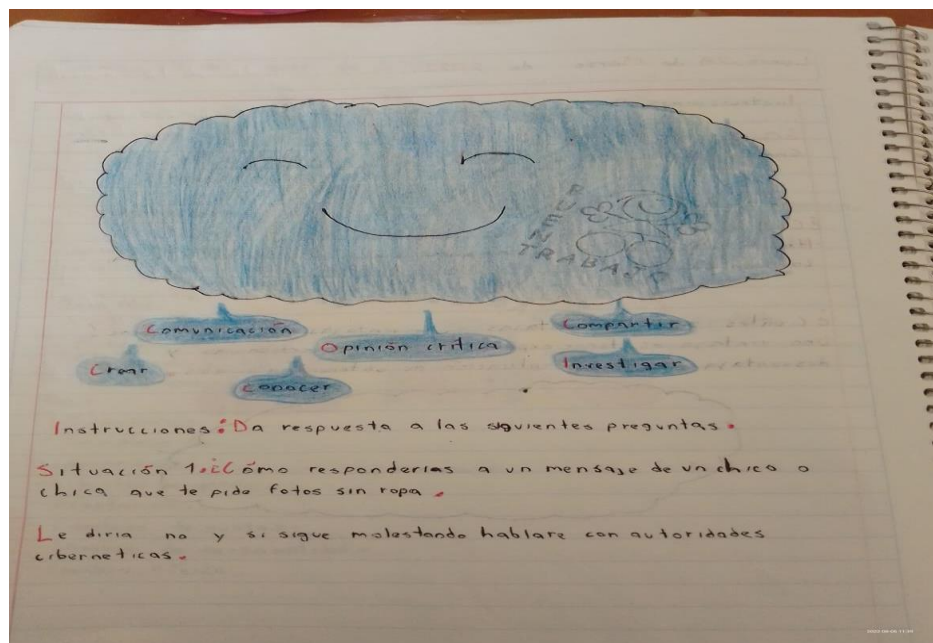 BUEN
TRABAJO
Comunicación
Opinión crítica
Compartir
Crear
Conocer
Investigar
Instrucciones: Da respuesta a las siguientes preguntas.
Situación 1. ¿Cómo responderías a un mensaje de un chico o
chica que te pide fotos sin ropa.
Le diria no y si sigue molestando hablare con autoridades
ciberneticas.